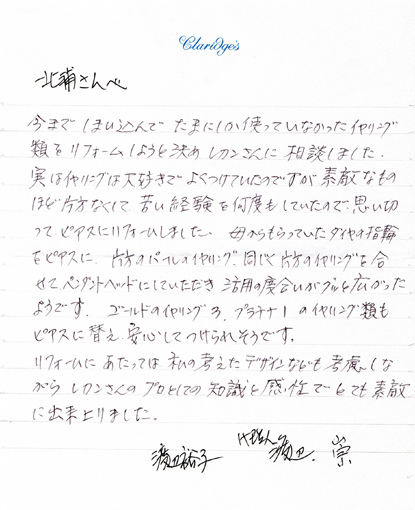 Claridge's
北浦さんへ
今まで しまい込んで たまにしか使っていなかったイヤリング
類をリフォームしようと決め レカンさんに 相談しました.
実はイヤリングは大好きで よくつけていたのですが 素敵なもの
ほど片方なくして 苦い経験を何度もしていたので、思い切
って ピアスにリフォームしました. 母からもらっていたダイヤの指輪
をピアスに、片方のパールのイヤリング、同じく片方のイヤリングを合
せて、ペンダントヘッドにしていただき 活用の度合いがグッと広がった
ようです. ゴールドのイヤリング も、プラチナ のイヤリング類も
ピアスに替え、安心してつけられそうです.
リフォームに あたっては 私の考えたデザインなども 考慮しな
がら レカンさんの プロとしての 知識と感性で とても素敵
に出来上りました.
渡辺裕子 渡辺. 崇